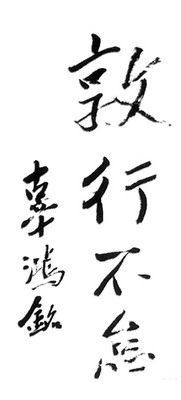 敦行不怠
辜鴻銘